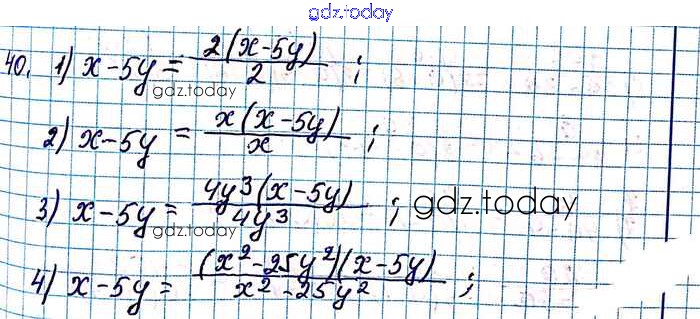 gdz.today
40. 1) x-5y = 2(x-5y)/2 ;
gdz.today
2) x-5y = x(x-5y)/x ;
3) x-5y = 4y³(x-5y)/4y³ ; gdz.today
gdz.today
4) x-5y = (x²-25y²)(x-5y)/x²-25y² ;